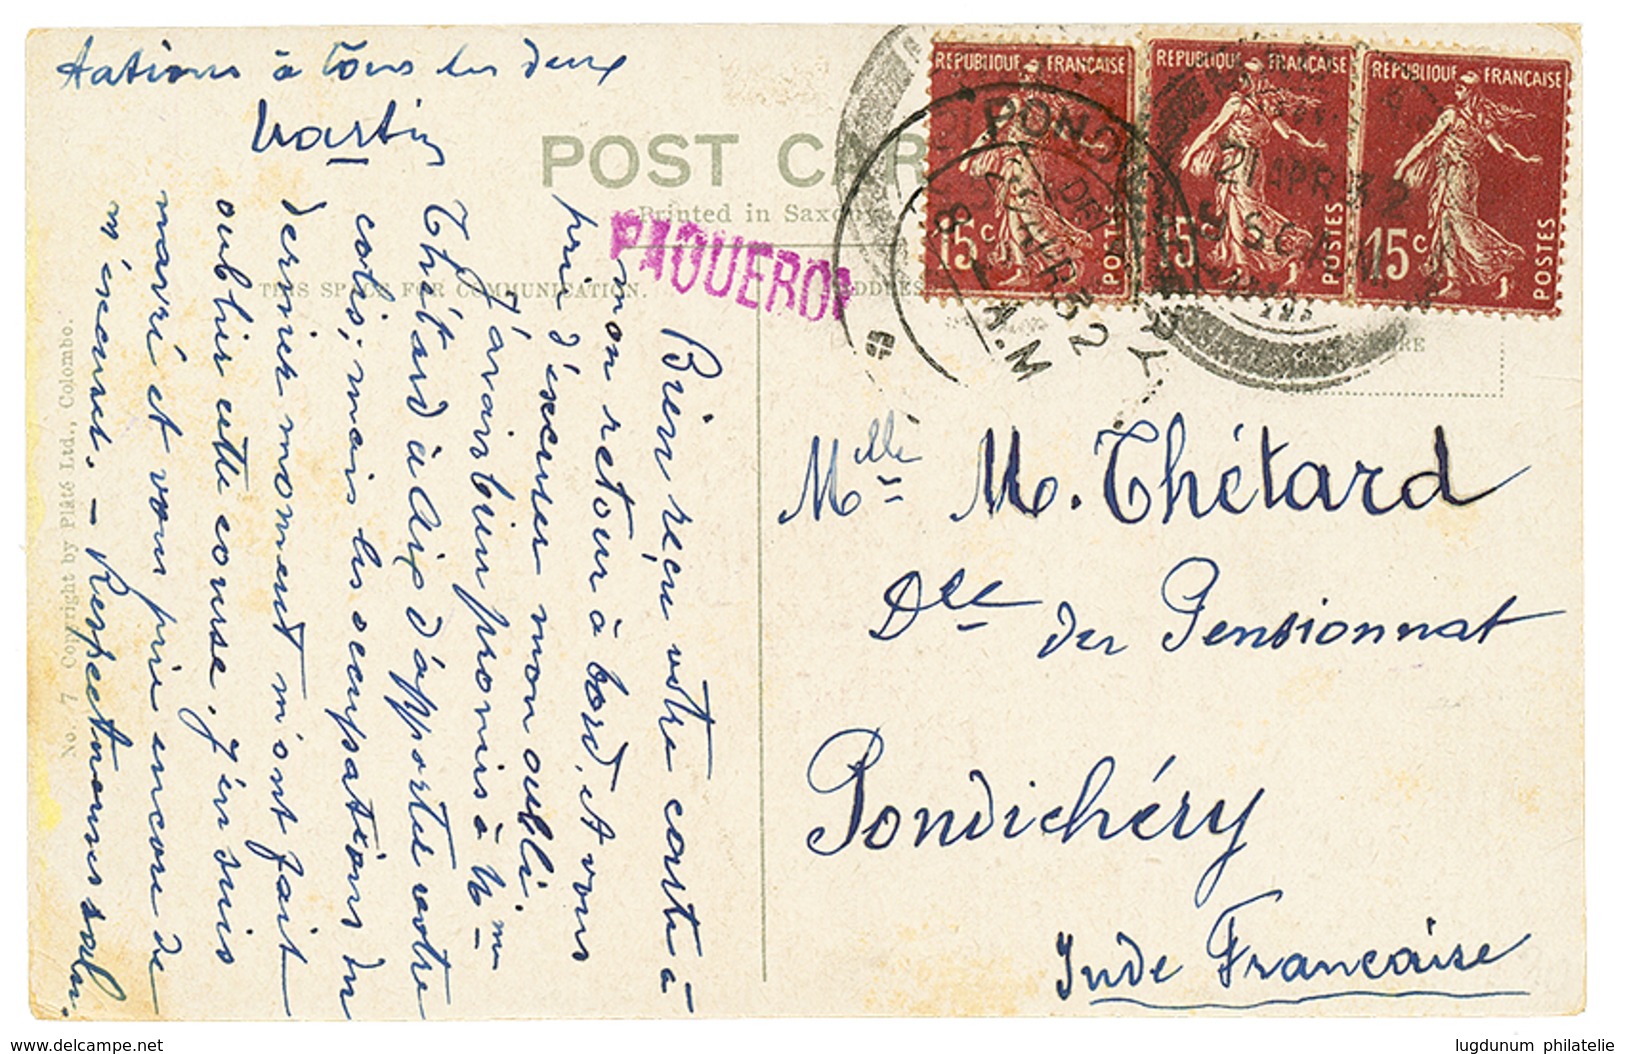 POST CAR
Printed in Saxony
THIS SPACE FOR COMMUNICATION.
ADDRESS
No. 7 Copyright by Plâté Ltd., Colombo.
PAQUEBOT
REPUBLIQUE FRANÇAISE
15c
POSTES
REPUBLIQUE FRANÇAISE
15c
POSTES
REPUBLIQUE FRANÇAISE
15c
POSTES
PONDICHERY
APR 32
A.M
21 APR 32
Bien reçu votre carte à
mon retour à bord, et vous
prie d'excuser mon oubli.
J'avais bien promis à Mme
Thétard à Aix d'apporter votre
colis, mais les occupations du
dernier moment m'ont fait
oublier cette course. J'en suis
navré et vous prie encore de
m'excuser. – Respectueuses salu-
tations à tous les deux
Martin
Melle M. Thétard
Dce du Pensionnat
Pondichéry
Inde Française
delcampe.net
lugdunum philatelie